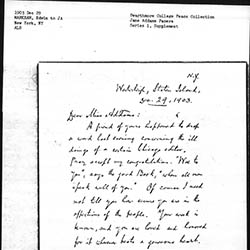 1903 Dec 29
MARKHAM, Edwin to JA
New York, NY
ALS
Swarthmore College Peace Collection
Jane Addams Papers
Series 1, Supplement
N.Y.
Westerleigh, Staten Island,
Dec. 29, 1903.
Dear Miss Addams:
A friend of yours happened to drop
a word last evening concerning the ill
doings of a certain Chicago editor.
Pray accept my congratulations. "Woe to
you", says the good Book, "when all men
speak well of you." Of course I need
not tell you how secure you are in the
affections of the people. Your work is
known, and you are loved and honored
for it wherever beats a generous heart.